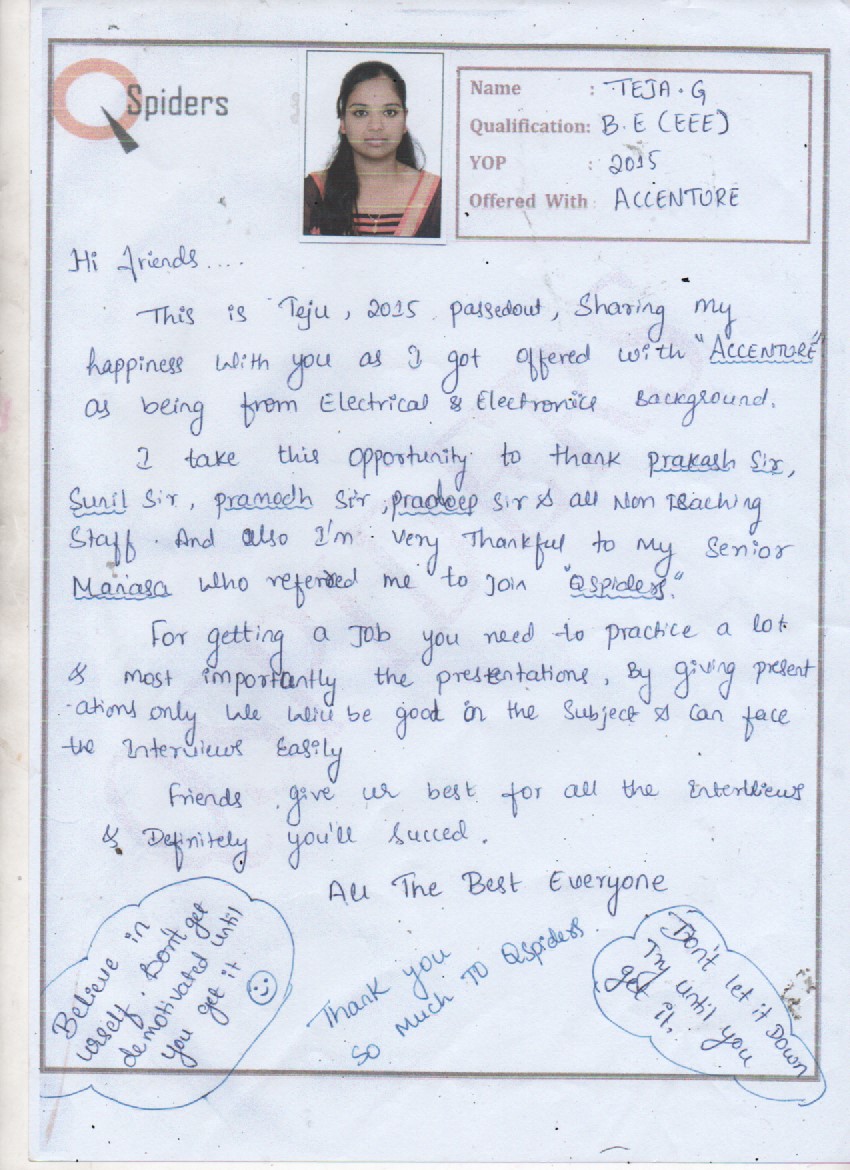 QSpiders
Name : TEJA. G
Qualification: B.E (EEE)
YOP : 2015
Offered With : ACCENTURE
Hi friends....
This is Teju, 2015 passedout, Sharing my
happiness with you as I got offered with "ACCENTURE"
as being from Electrical & Electronics Background.
I take this opportunity to thank prakash Sir,
Sunil Sir, pramodh Sir, pradeep Sir & all Non teaching
Staff. And also I'm very Thankful to my Senior
Manasa who referred me to Join "Qspiders."
For getting a Job you need to practice a lot
& most importantly the presentations, By giving present
-ations only we will be good in the Subject & can face
the Interviews Easily
Friends give ur best for all the interviews
& Definitely you'll Succed.
All The Best Everyone
Believe in
urself. Don't get
demotivated until
you get it
Thank you
so much TO Qspiders
Don't let it Down
Try until you
get it.